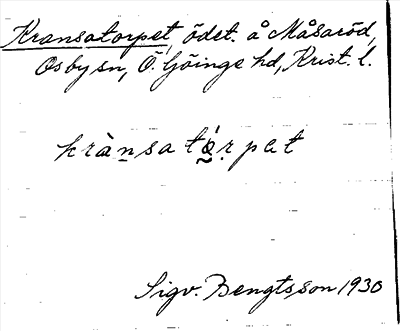 Kransatorpet, ödet. å Måsaröd,
Osby sn, Ö. Göinge hd, Krist. l.
kràn̲sa tó̰r̤pet
Sigv. Bengtsson 1930